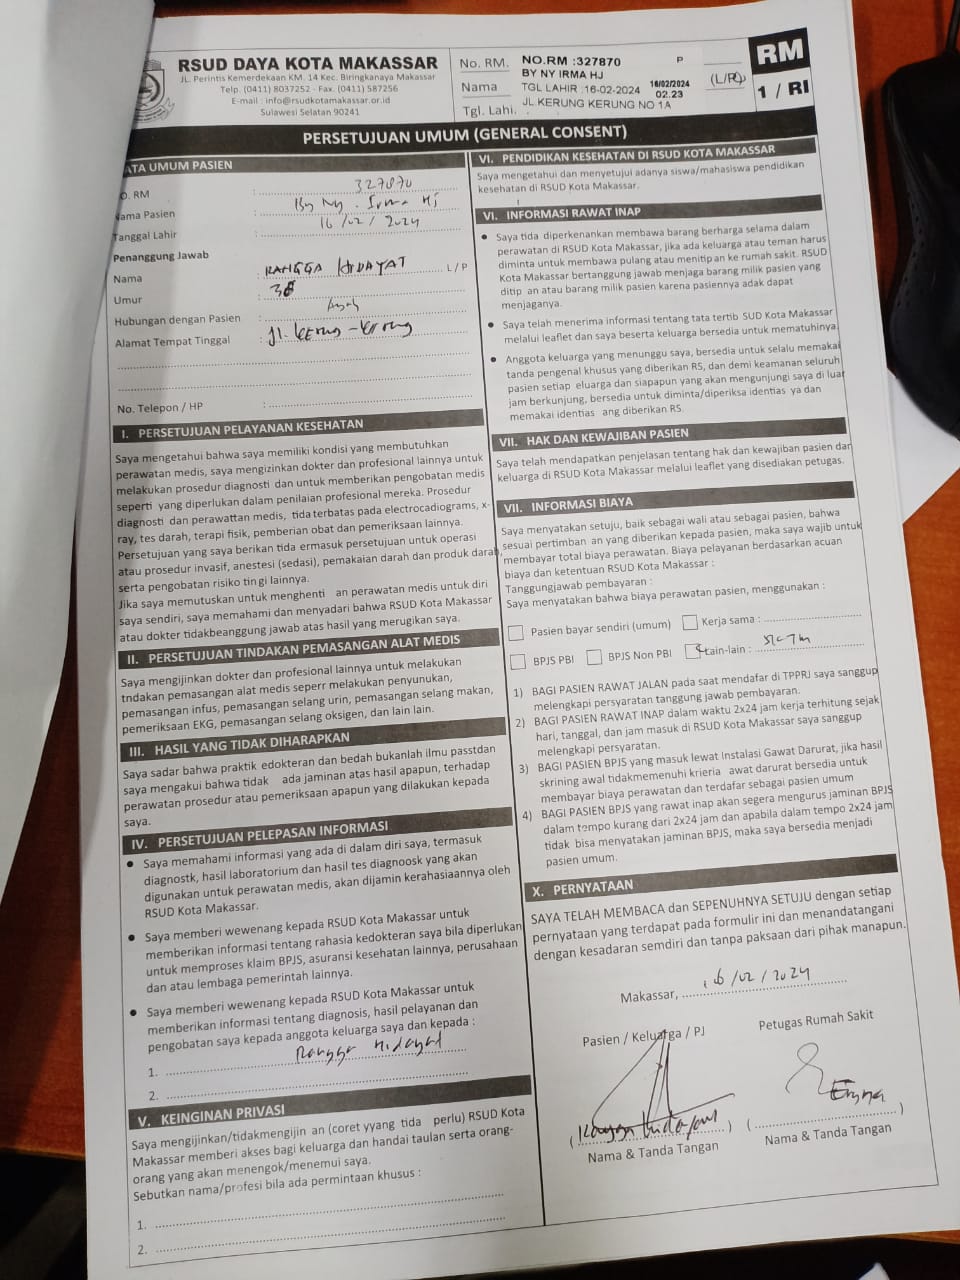 RSUD DAYA KOTA MAKASSAR
JL. Perintis Kemerdekaan KM. 14 Kec. Biringkanaya Makassar
Telp. (0411) 8037252 - Fax. (0411) 587256
E-mail : info@rsudkotamakassar.or.id
Sulawesi Selatan 90241
No. RM. NO.RM :327870 P
BY NY IRMA HJ
Nama TGL LAHIR :16-02-2024 16/02/2024 02.23 (L/P)
Tgl. Lahi. JL.KERUNG KERUNG NO 1A
RM
1 / RI
PERSETUJUAN UMUM (GENERAL CONSENT)
ATA UMUM PASIEN
O. RM : 327870
Nama Pasien : By Ny. Irma Hj
Tanggal Lahir : 16/02/2024
Penanggung Jawab
Nama : RANGGA HIDAYAT L/P
Umur : 38
Hubungan dengan Pasien : Ayah
Alamat Tempat Tinggal : Jl. kerung-kerung
No. Telepon / HP :
I. PERSETUJUAN PELAYANAN KESEHATAN
Saya mengetahui bahwa saya memiliki kondisi yang membutuhkan
perawatan medis, saya mengizinkan dokter dan profesional lainnya untuk
melakukan prosedur diagnosti dan untuk memberikan pengobatan medis
seperti yang diperlukan dalam penilaian profesional mereka. Prosedur
diagnosti dan perawattan medis, tida terbatas pada electrocadiograms, x-
ray, tes darah, terapi fisik, pemberian obat dan pemeriksaan lainnya.
Persetujuan yang saya berikan tida ermasuk persetujuan untuk operasi
atau prosedur invasif, anestesi (sedasi), pemakaian darah dan produk darah,
serta pengobatan risiko tin gi lainnya.
Jika saya memutuskan untuk menghenti an perawatan medis untuk diri
saya sendiri, saya memahami dan menyadari bahwa RSUD Kota Makassar
atau dokter tidakbeanggung jawab atas hasil yang merugikan saya.
II. PERSETUJUAN TINDAKAN PEMASANGAN ALAT MEDIS
Saya mengijinkan dokter dan profesional lainnya untuk melakukan
tndakan pemasangan alat medis seperr melakukan penyunukan,
pemasangan infus, pemasangan selang urin, pemasangan selang makan,
pemeriksaan EKG, pemasangan selang oksigen, dan lain lain.
III. HASIL YANG TIDAK DIHARAPKAN
Saya sadar bahwa praktik edokteran dan bedah bukanlah ilmu passtdan
saya mengakui bahwa tidak ada jaminan atas hasil apapun, terhadap
perawatan prosedur atau pemeriksaan apapun yang dilakukan kepada
saya.
IV. PERSETUJUAN PELEPASAN INFORMASI
• Saya memahami informasi yang ada di dalam diri saya, termasuk
diagnostk, hasil laboratorium dan hasil tes diagnoosk yang akan
digunakan untuk perawatan medis, akan dijamin kerahasiaannya oleh
RSUD Kota Makassar.
• Saya memberi wewenang kepada RSUD Kota Makassar untuk
memberikan informasi tentang rahasia kedokteran saya bila diperlukan
untuk memproses klaim BPJS, asuransi kesehatan lainnya, perusahaan
dan atau lembaga pemerintah lainnya.
• Saya memberi wewenang kepada RSUD Kota Makassar untuk
memberikan informasi tentang diagnosis, hasil pelayanan dan
pengobatan saya kepada anggota keluarga saya dan kepada :
1. Rangga Hidayat
2.
V. KEINGINAN PRIVASI
Saya mengijinkan/tidakmengijin an (coret yyang tida perlu) RSUD Kota
Makassar memberi akses bagi keluarga dan handai taulan serta orang-
orang yang akan menengok/menemui saya.
Sebutkan nama/profesi bila ada permintaan khusus :
1.
2.
VI. PENDIDIKAN KESEHATAN DI RSUD KOTA MAKASSAR
Saya mengetahui dan menyetujui adanya siswa/mahasiswa pendidikan
kesehatan di RSUD Kota Makassar.
VI. INFORMASI RAWAT INAP
• Saya tida diperkenankan membawa barang berharga selama dalam
perawatan di RSUD Kota Makassar, jika ada keluarga atau teman harus
diminta untuk membawa pulang atau menitip an ke rumah sakit. RSUD
Kota Makassar bertanggung jawab menjaga barang milik pasien yang
ditip an atau barang milik pasien karena pasiennya adak dapat
menjaganya.
• Saya telah menerima informasi tentang tata tertib SUD Kota Makassar
melalui leaflet dan saya beserta keluarga bersedia untuk mematuhinya.
• Anggota keluarga yang menunggu saya, bersedia untuk selalu memakai
tanda pengenal khusus yang diberikan RS, dan demi keamanan seluruh
pasien setiap eluarga dan siapapun yang akan mengunjungi saya di luar
jam berkunjung, bersedia untuk diminta/diperiksa identias ya dan
memakai identias ang diberikan RS.
VII. HAK DAN KEWAJIBAN PASIEN
Saya telah mendapatkan penjelasan tentang hak dan kewajiban pasien dan
keluarga di RSUD Kota Makassar melalui leaflet yang disediakan petugas.
VII. INFORMASI BIAYA
Saya menyatakan setuju, baik sebagai wali atau sebagai pasien, bahwa
sesuai pertimban an yang diberikan kepada pasien, maka saya wajib untuk
membayar total biaya perawatan. Biaya pelayanan berdasarkan acuan
biaya dan ketentuan RSUD Kota Makassar :
Tanggungjawab pembayaran :
Saya menyatakan bahwa biaya perawatan pasien, menggunakan :
Pasien bayar sendiri (umum) Kerja sama :
BPJS PBI BPJS Non PBI Lain-lain :
1) BAGI PASIEN RAWAT JALAN pada saat mendafar di TPPRJ saya sanggup
melengkapi persyaratan tanggung jawab pembayaran.
2) BAGI PASIEN RAWAT INAP dalam waktu 2x24 jam kerja terhitung sejak
hari, tanggal, dan jam masuk di RSUD Kota Makassar saya sanggup
melengkapi persyaratan.
3) BAGI PASIEN BPJS yang masuk lewat Instalasi Gawat Darurat, jika hasil
skrining awal tidakmemenuhi krieria awat darurat bersedia untuk
membayar biaya perawatan dan terdafar sebagai pasien umum
4) BAGI PASIEN BPJS yang rawat inap akan segera mengurus jaminan BPJS
dalam tempo kurang dari 2x24 jam dan apabila dalam tempo 2x24 jam
tidak bisa menyatakan jaminan BPJS, maka saya bersedia menjadi
pasien umum.
X. PERNYATAAN
SAYA TELAH MEMBACA dan SEPENUHNYA SETUJU dengan setiap
pernyataan yang terdapat pada formulir ini dan menandatangani
dengan kesadaran semdiri dan tanpa paksaan dari pihak manapun.
Makassar, 16/02/2024
Pasien / Keluarga / PJ Petugas Rumah Sakit
(Rangga Hidayat) (Erma)
Nama & Tanda Tangan Nama & Tanda Tangan